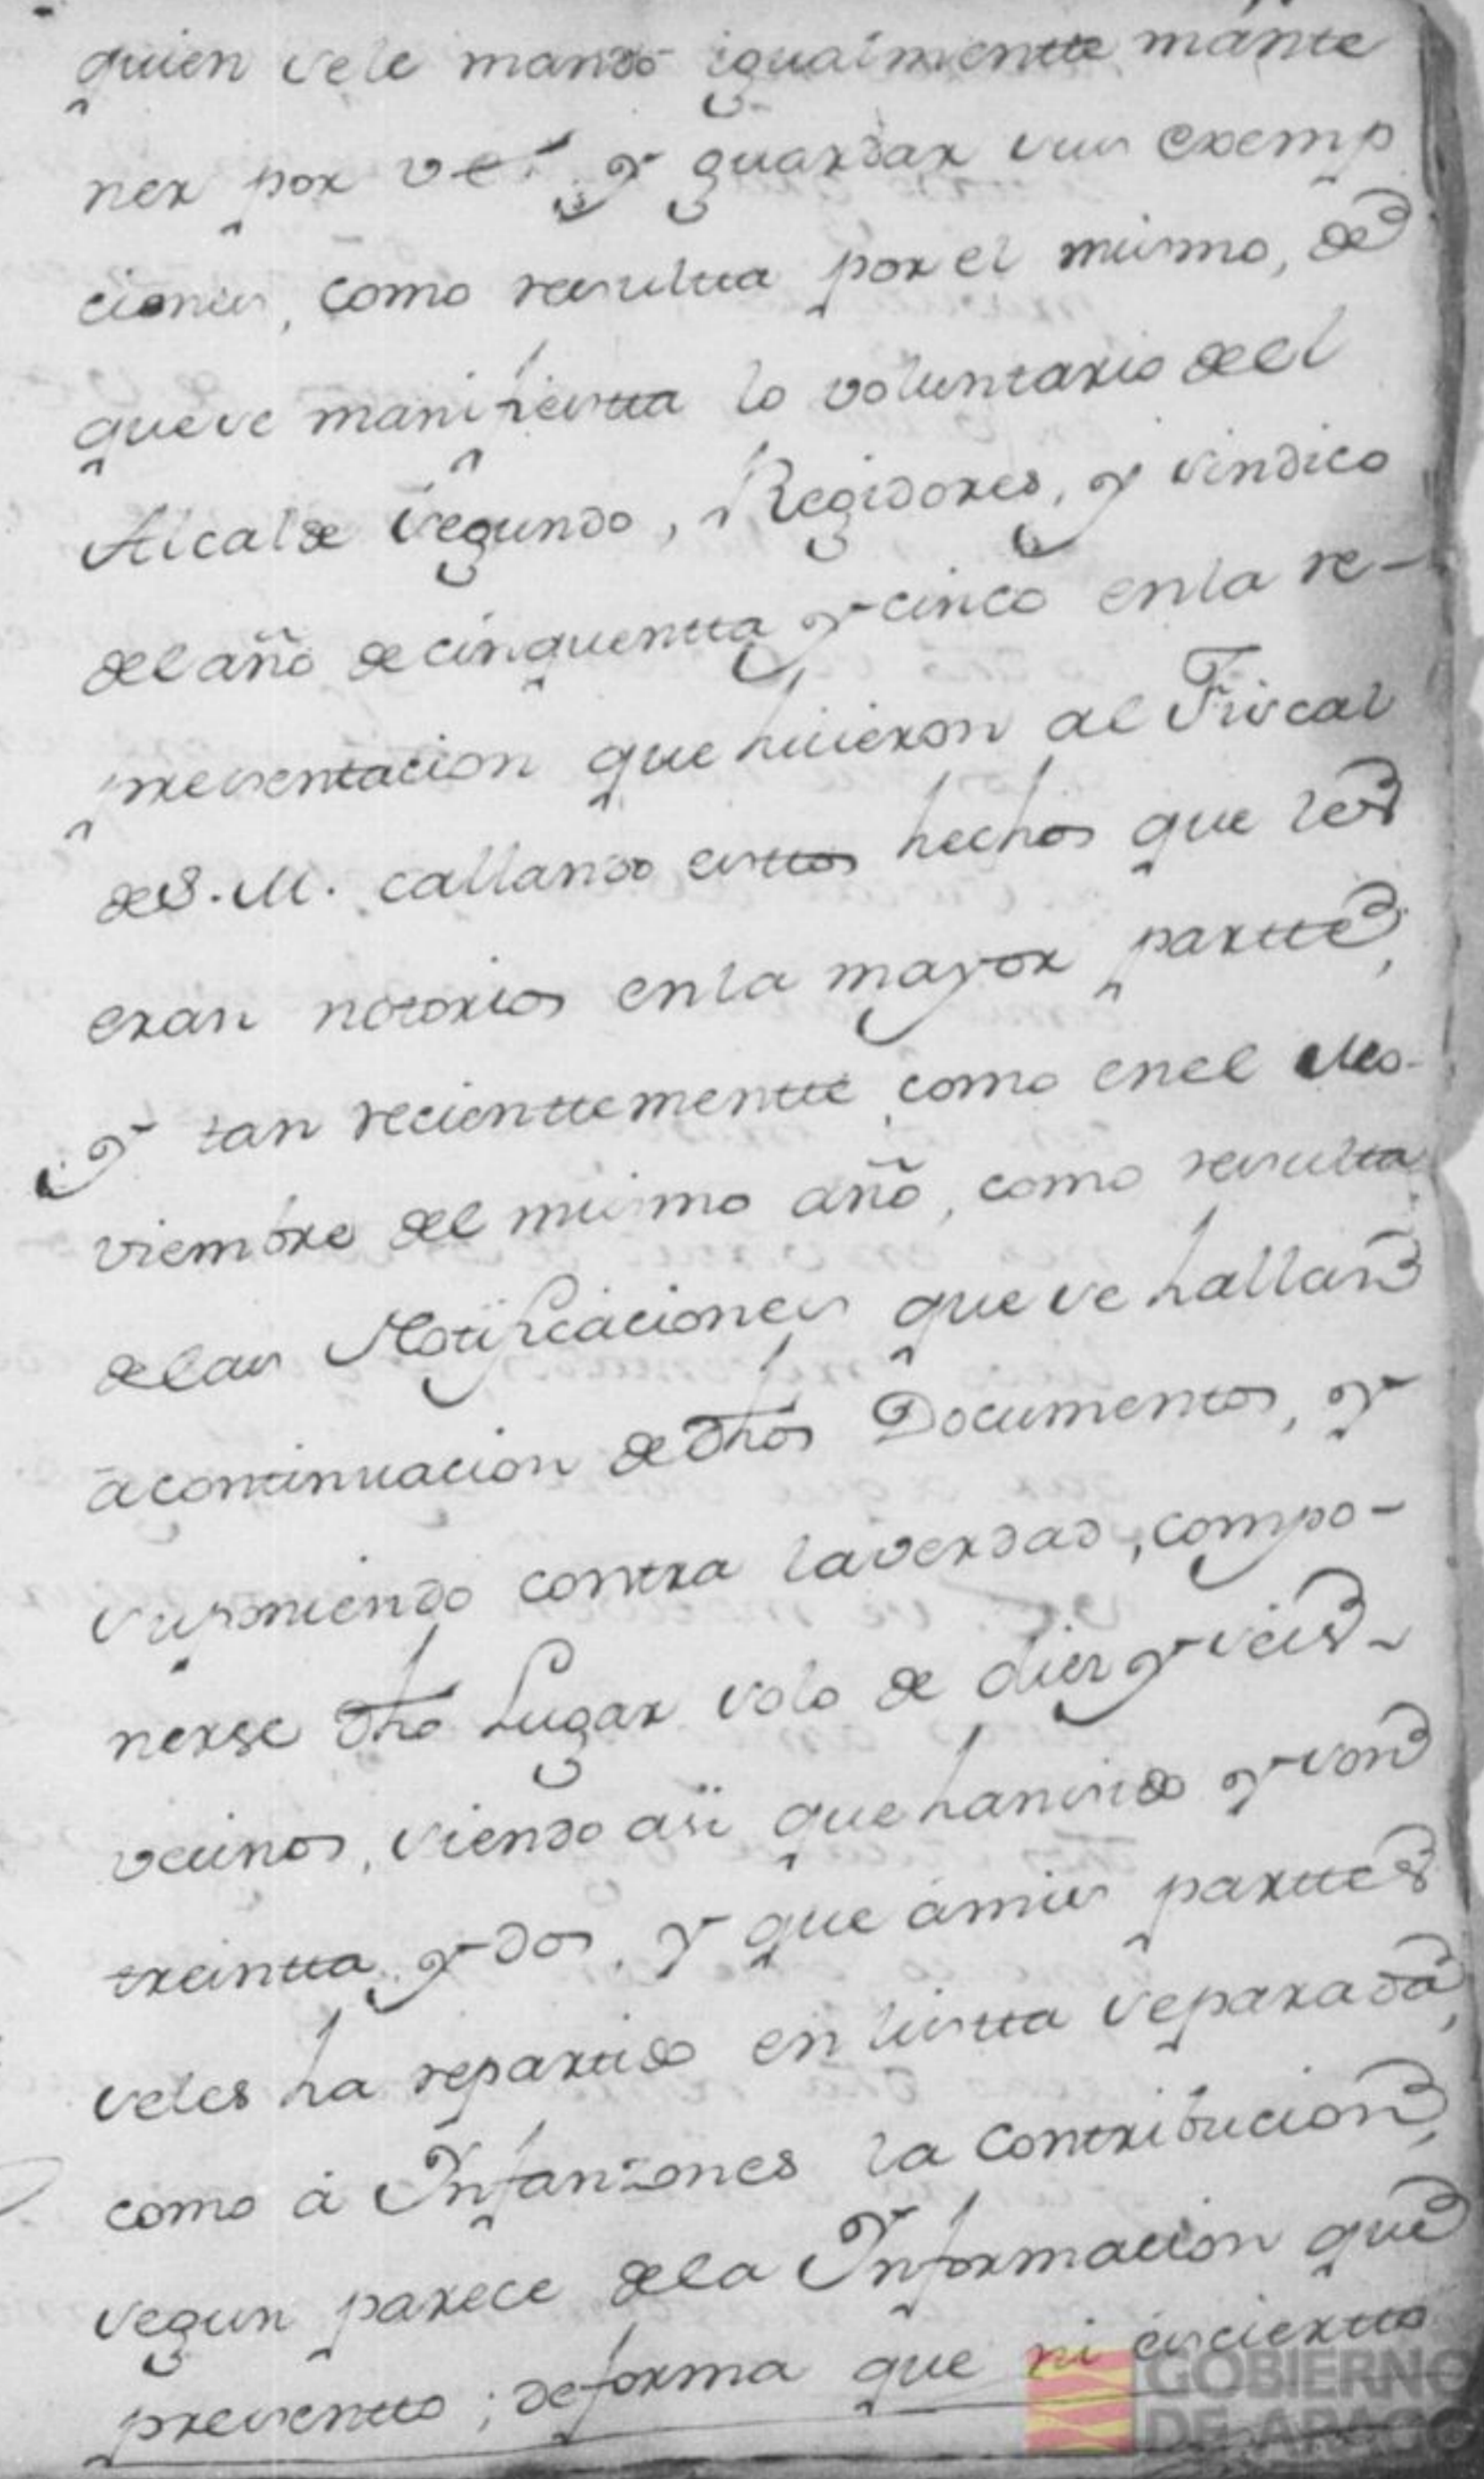 quien sele mandó igualmentte mante
ner por tal, y guardar sus exemp
ciones, como resultta por el mismo, de
quese manifiestta lo voluntario del
Alcalde segundo, Regidores, y sindico
del año de cinquentta y cinco enla re-
presentacion que hicieron al Fiscal
de S. M. callando esttos hechos que les
eran notorios enla mayor partte,
y tan recienttementte como enel No-
viembre del mismo año, como resultta
delas Notificaciones que se hallan
acontinuacion de dhos Documentos, y
suponiendo contra laverdad, compo-
nerse dho Lugar solo de diez y seis
vecinos, siendo asi que hansido y son
treintta y dos, y que àmis parttes
seles ha repartido en listta separada,
como à Infanzones la contribucion,
segun parece dela Informacion que
presentto; deforma que ni esciertto
GOBIERNO
DE ARAGO